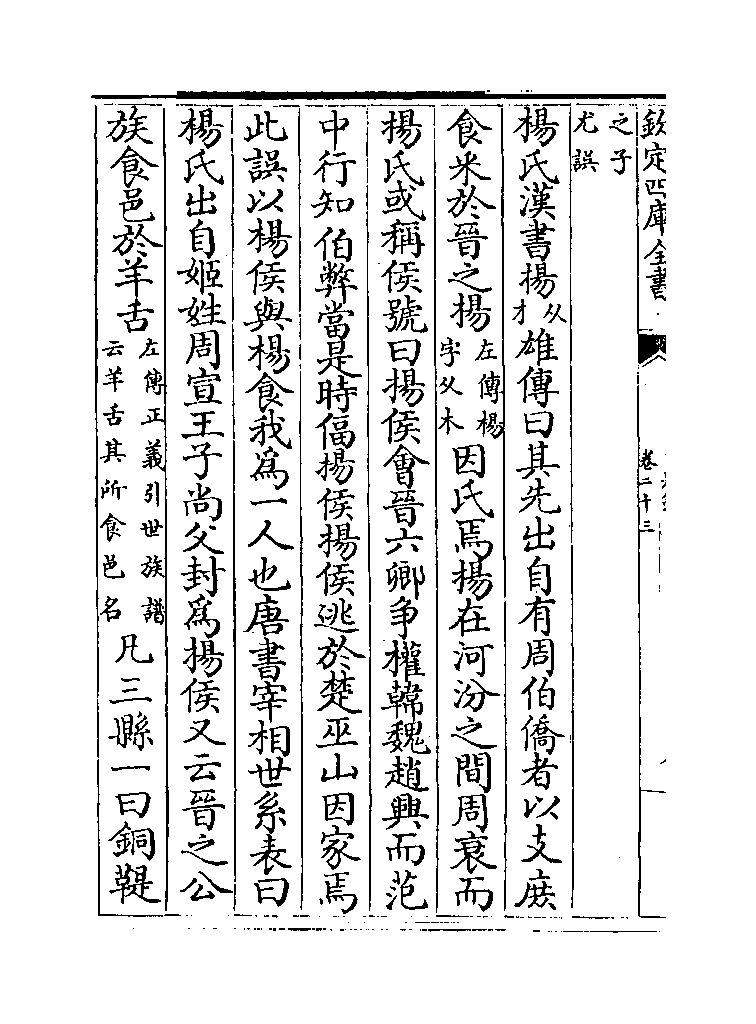 欽定四庫全書
卷二十三
之子
尤誤
楊氏漢書揚从才雄傳曰其先出自有周伯僑者以支庻
食采於晉之揚左傳楊字从木因氏焉揚在河汾之間周衰而
楊氏或稱侯號曰揚侯會晉六卿争權韓魏趙興而范
中行知伯弊當是時偪揚侯揚侯逃於楚巫山因家焉
此誤以楊侯與楊食我為一人也唐書宰相世系表曰
楊氏出自姬姓周宣王子尚父封為揚侯又云晉之公
族食邑於羊舌左傳正義引世族譜云羊舌其所食邑名凡三縣一曰銅鞮